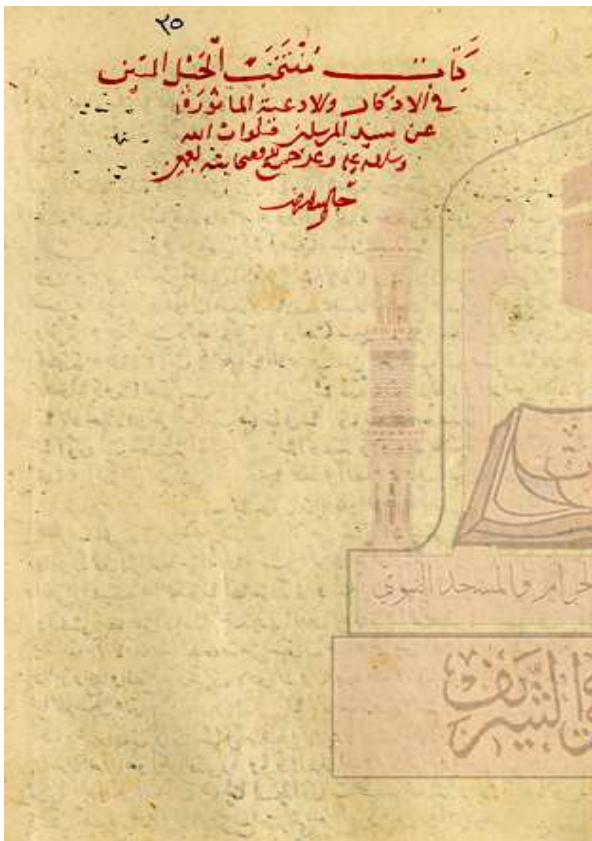 ٢٥
كتاب مُنْتَخَبُ الْحَبْل المتين
في الاذكار والادعية الماثورة
عن سيد المرسلين صلوات الله
وسلامه عليه وعلى وصحابته اجمعين
الحرام والمسجد النبوي
الشريف